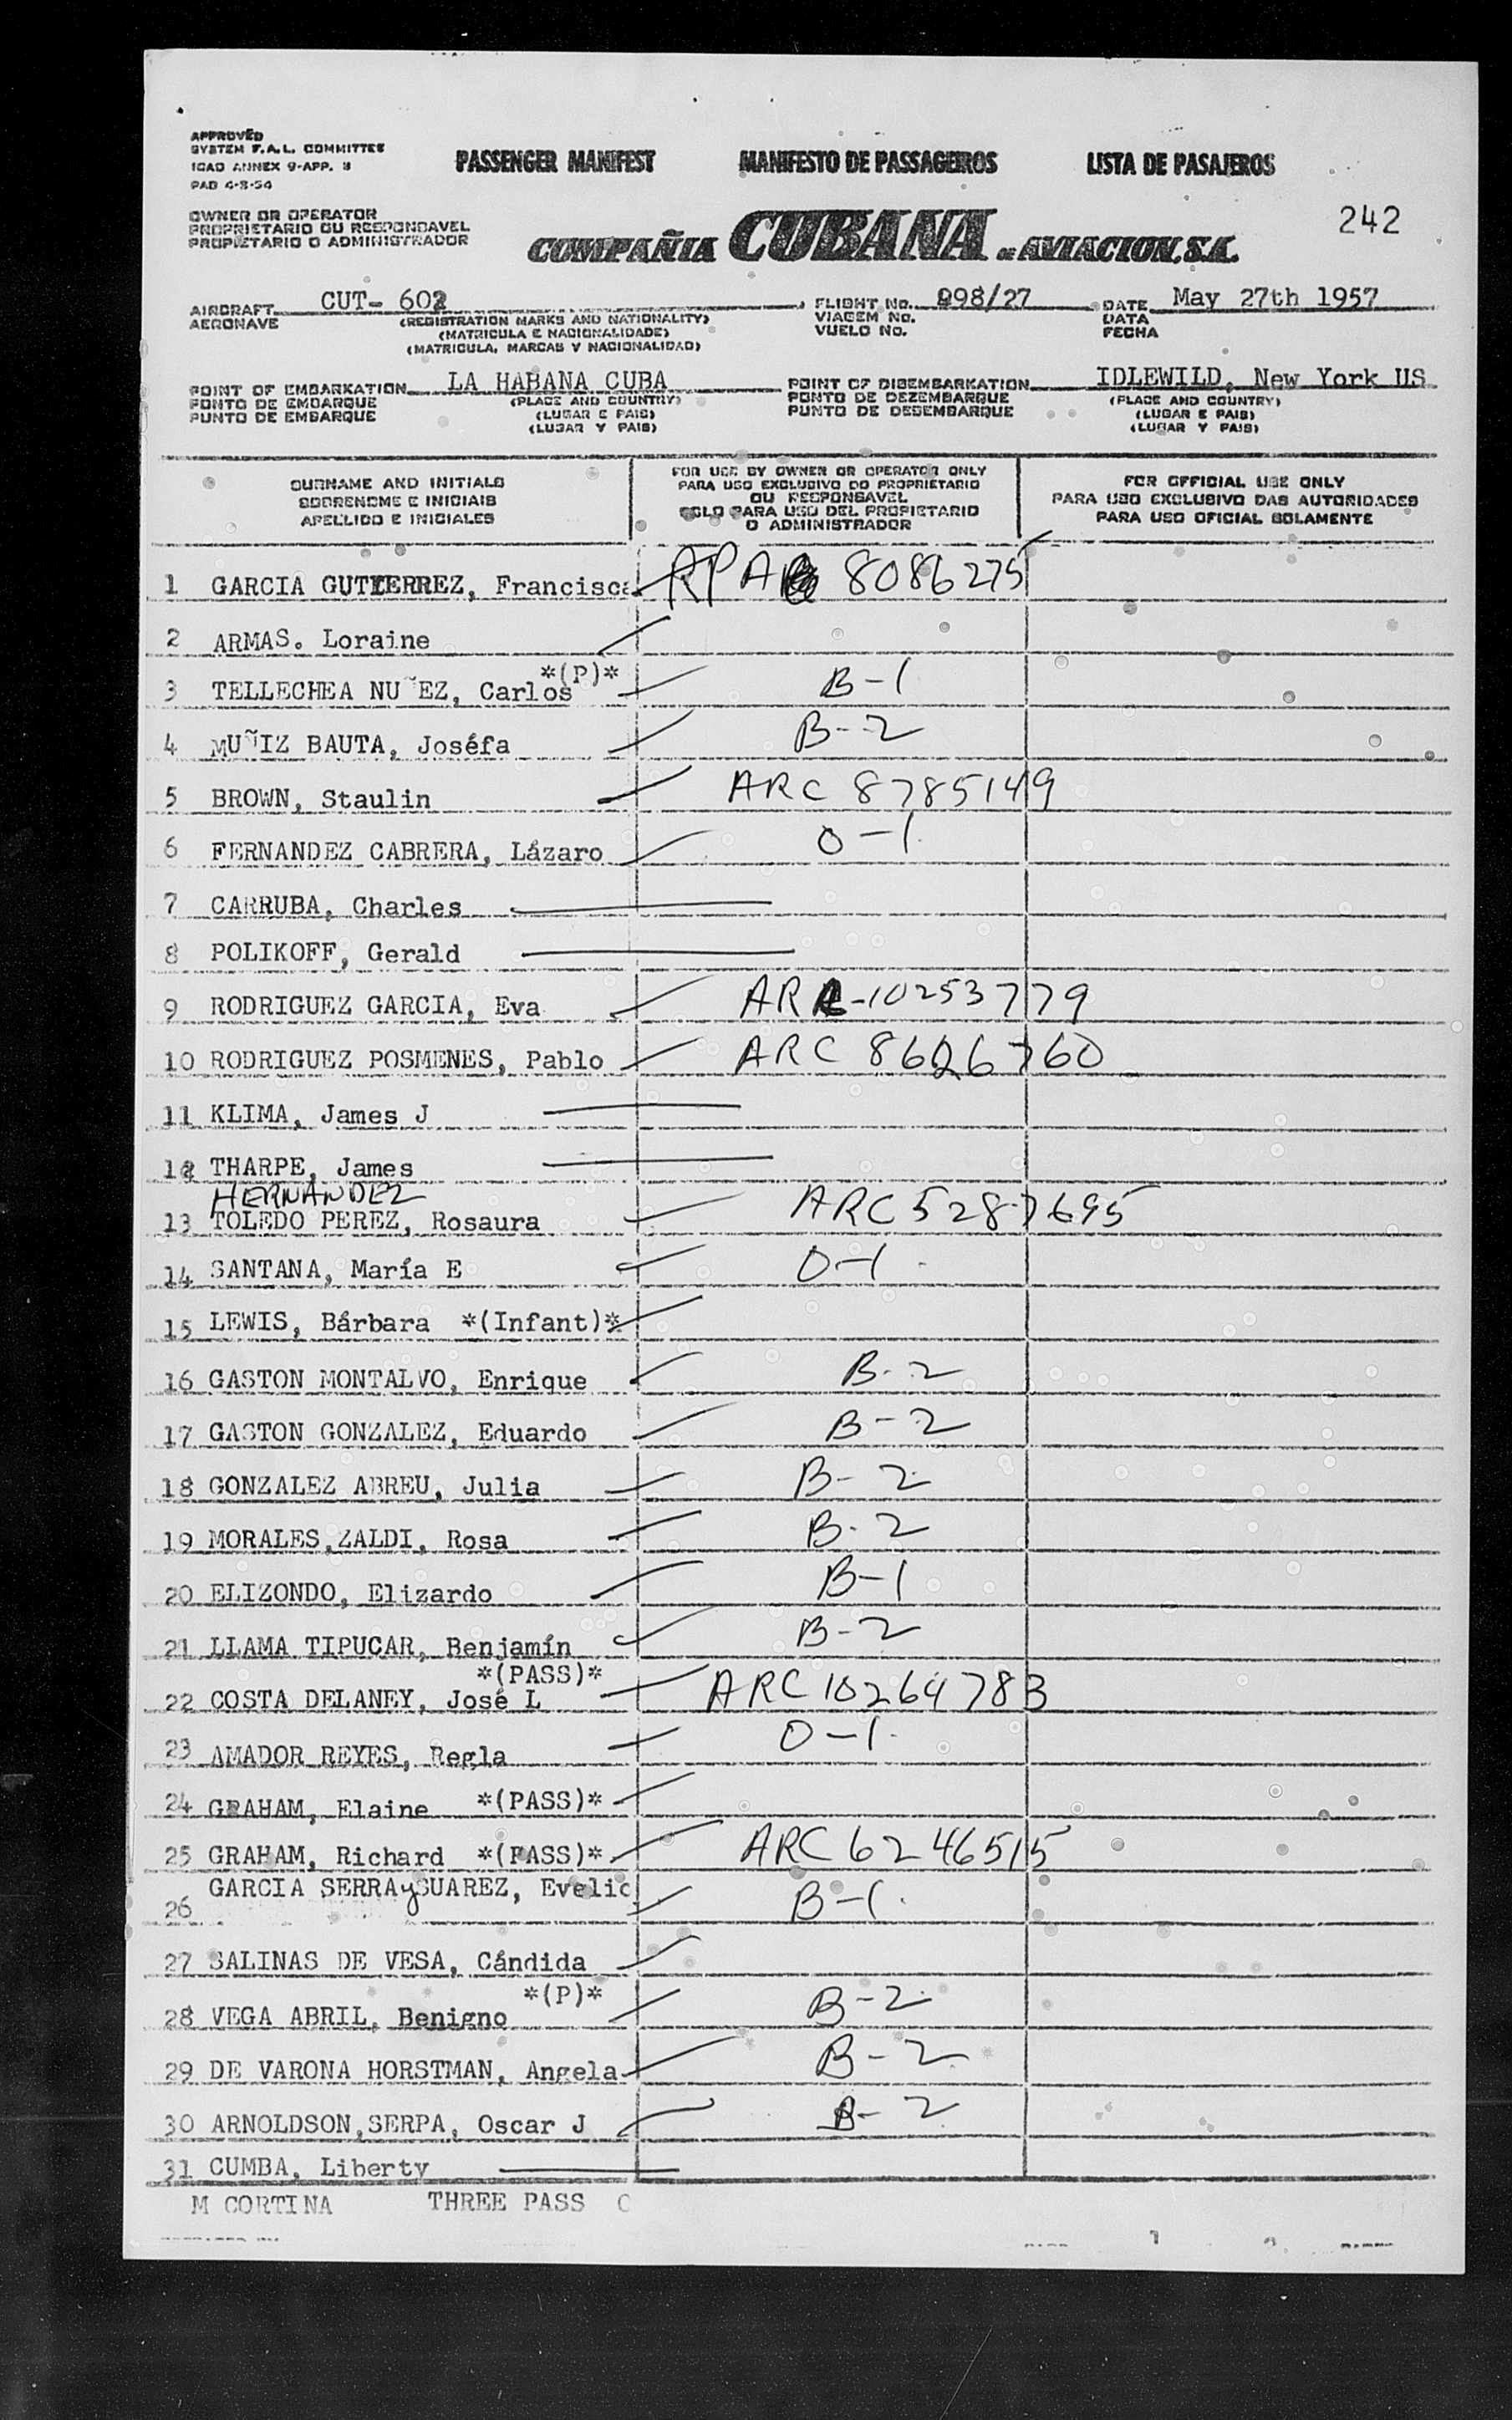 APPROVED
SYSTEM F.A.L. COMMITTEE
ICAO ANNEX 9-APP. 3
PAD 4-8-54
PASSENGER MANIFEST MANIFESTO DE PASSAGEIROS LISTA DE PASAJEROS
OWNER OR OPERATOR
PROPRIETARIO OU RESPONSAVEL
PROPIETARIO O ADMINISTRADOR
242
COMPAÑIA CUBANA DE AVIACION, S.A.
AIRCRAFT CUT- 602 FLIGHT No. 898/27 DATE May 27th 1957
AERONAVE (REGISTRATION MARKS AND NATIONALITY) VIAGEM No. DATA
(MATRICULA E NACIONALIDADE) VUELO No. FECHA
(MATRICULA, MARCAS Y NACIONALIDAD)
POINT OF EMBARKATION LA HABANA CUBA POINT OF DISEMBARKATION IDLEWILD, New York US
PONTO DE EMBARQUE (PLACE AND COUNTRY) PONTO DE DEZEMBARQUE (PLACE AND COUNTRY)
PUNTO DE EMBARQUE (LUGAR E PAIS) PUNTO DE DESEMBARQUE (LUGAR E PAIS)
(LUGAR Y PAIS) (LUGAR Y PAIS)
SURNAME AND INITIALS
SOBRENOME E INICIAIS
APELLIDO E INICIALES
FOR USE BY OWNER OR OPERATOR ONLY
PARA USO EXCLUSIVO DO PROPRIETARIO
OU RESPONSAVEL
SOLO PARA USO DEL PROPIETARIO
O ADMINISTRADOR
FOR OFFICIAL USE ONLY
PARA USO EXCLUSIVO DAS AUTORIDADES
PARA USO OFICIAL SOLAMENTE
1 GARCIA GUTIERREZ, Francisca 8086275
2 ARMAS. Loraine
*(P)*
3 TELLECHEA NUÑEZ, Carlos B-1
4 MUÑIZ BAUTA, Joséfa B-2
5 BROWN, Staulin ARC 8785149
6 FERNANDEZ CABRERA, Lázaro O-1
7 CARRUBA, Charles
8 POLIKOFF, Gerald
9 RODRIGUEZ GARCIA, Eva ARC-10253779
10 RODRIGUEZ POSMENES, Pablo ARC 8626760
11 KLIMA, James J
12 THARPE, James
HERNANDEZ
13 TOLEDO PEREZ, Rosaura ARC 5287695
14 SANTANA, María E O-1
15 LEWIS, Bárbara *(Infant)*
16 GASTON MONTALVO, Enrique B-2
17 GASTON GONZALEZ, Eduardo B-2
18 GONZALEZ ABREU, Julia B-2
19 MORALES,ZALDI, Rosa B-2
20 ELIZONDO, Elizardo B-1
21 LLAMA TIPUCAR, Benjamín B-2
*(PASS)*
22 COSTA DELANEY, José L ARC 10264783
23 AMADOR REYES, Regla O-1
24 GRAHAM, Elaine *(PASS)*
25 GRAHAM, Richard *(PASS)* ARC 6246515
26 GARCIA SERRA y SUAREZ, Evelio B-1
27 SALINAS DE VESA, Cándida
*(P)*
28 VEGA ABRIL, Benigno B-2
29 DE VARONA HORSTMAN, Angela B-2
30 ARNOLDSON,SERPA, Oscar J B-2
31 CUMBA, Liberty
M CORTINA THREE PASS